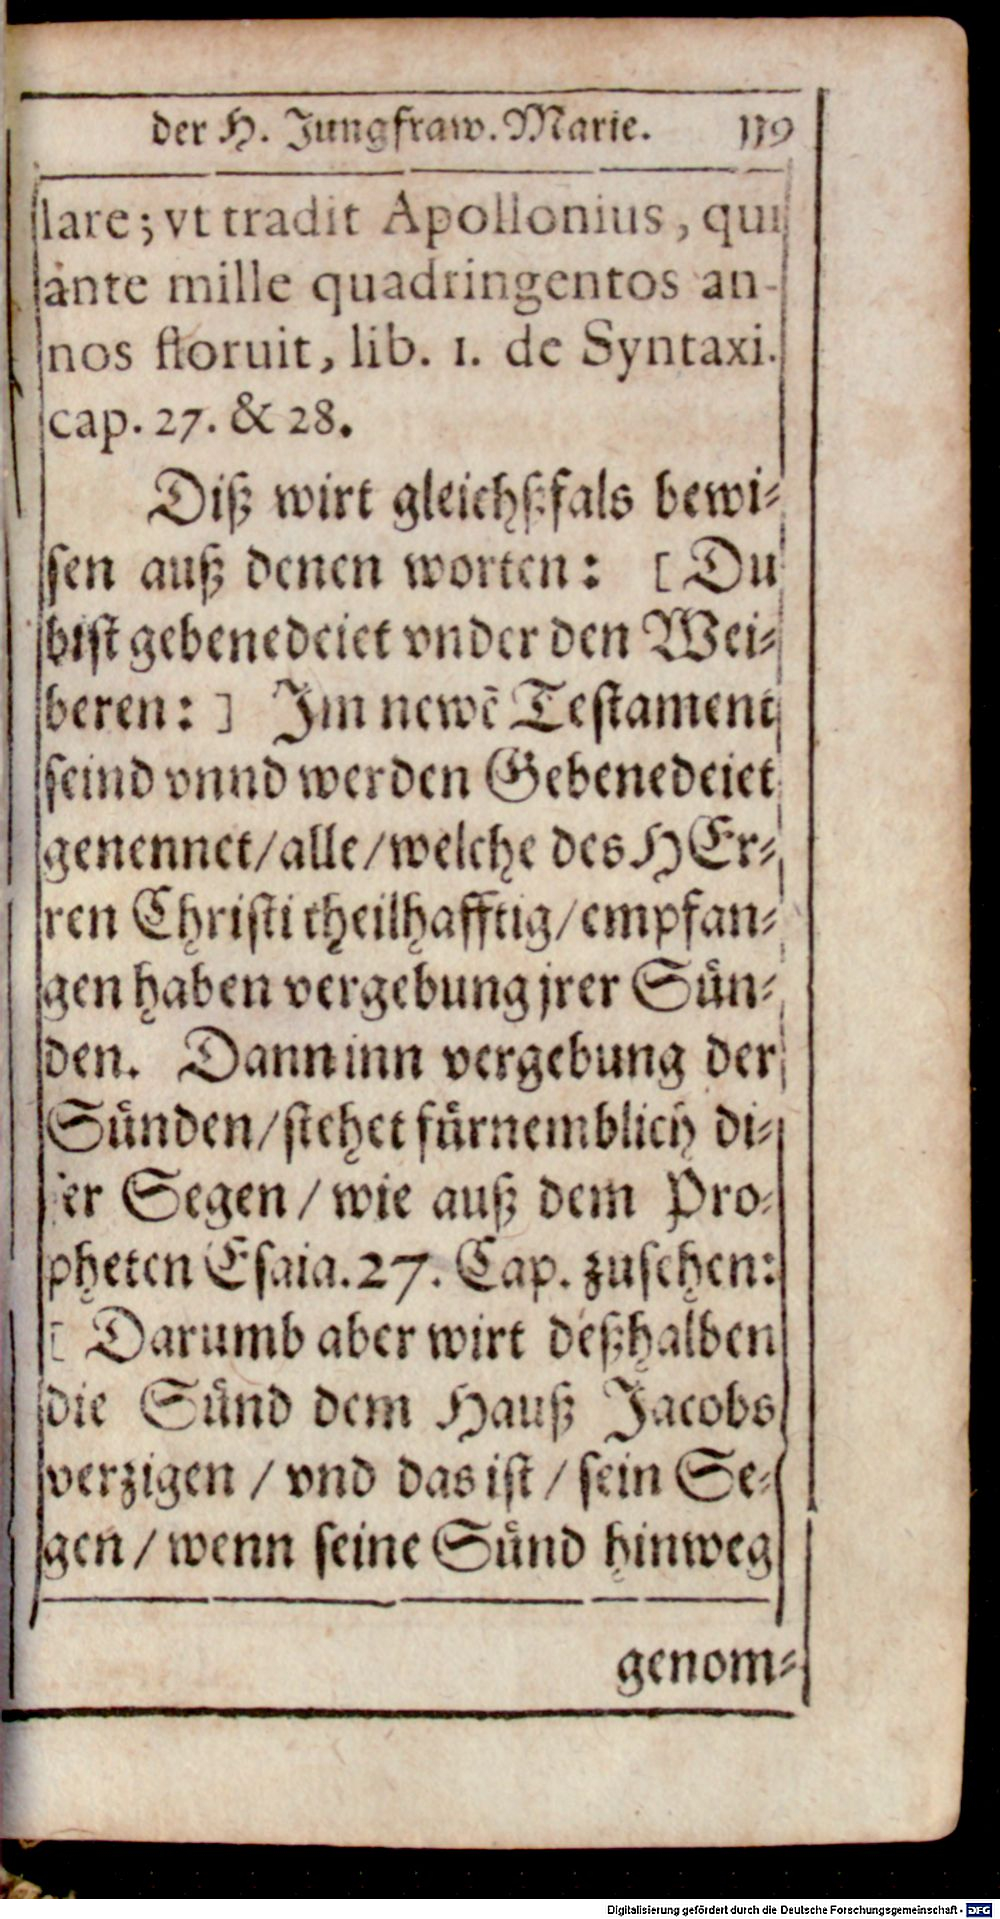 der H. Jungfraw. Marie. 119
lare; vt tradit Apollonius, qui
ante mille quadringentos an-
nos floruit, lib. 1. de Syntaxi.
cap. 27. & 28.
Diß wirt gleichßfals bewi-
sen auß denen worten: [Du
bist gebenedeiet vnder den Wei-
beren:] Im newē Testament
seind vnnd werden Gebenedeiet
genennet/alle/welche des HEr-
ren Christi theilhafftig/empfan-
gen haben vergebung jrer Sün-
den. Dann inn vergebung der
Sünden/stehet fürnemblich di-
ser Segen/wie auß dem Pro-
pheten Esaia. 27. Cap. zusehen:
[Darumb aber wirt deßhalben
die Sünd dem Hauß Jacobs
verzigen/vnd das ist/sein Se-
gen/wenn seine Sünd hinweg
genom-
Digitalisierung gefördert durch die Deutsche Forschungsgemeinschaft - DFG